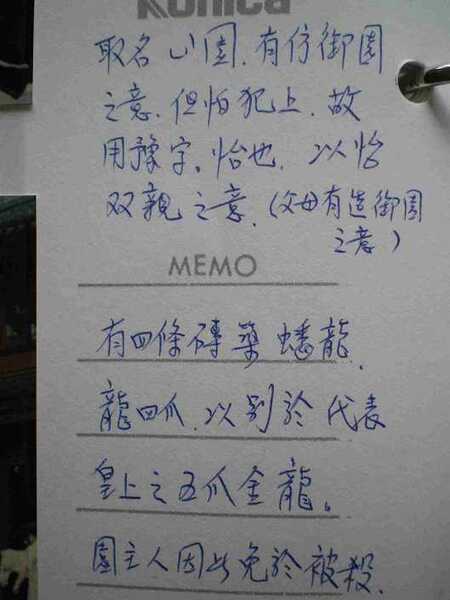 Konica
取名以園、有仿御園
之意、但怕犯上、故
用豫字。怡也、以怡
双親之意、(父母有造御園
之意)
MEMO
有四條磚築蟠龍、
龍四爪、以別於代表
皇上之五爪金龍。
園主人因此免於被殺、